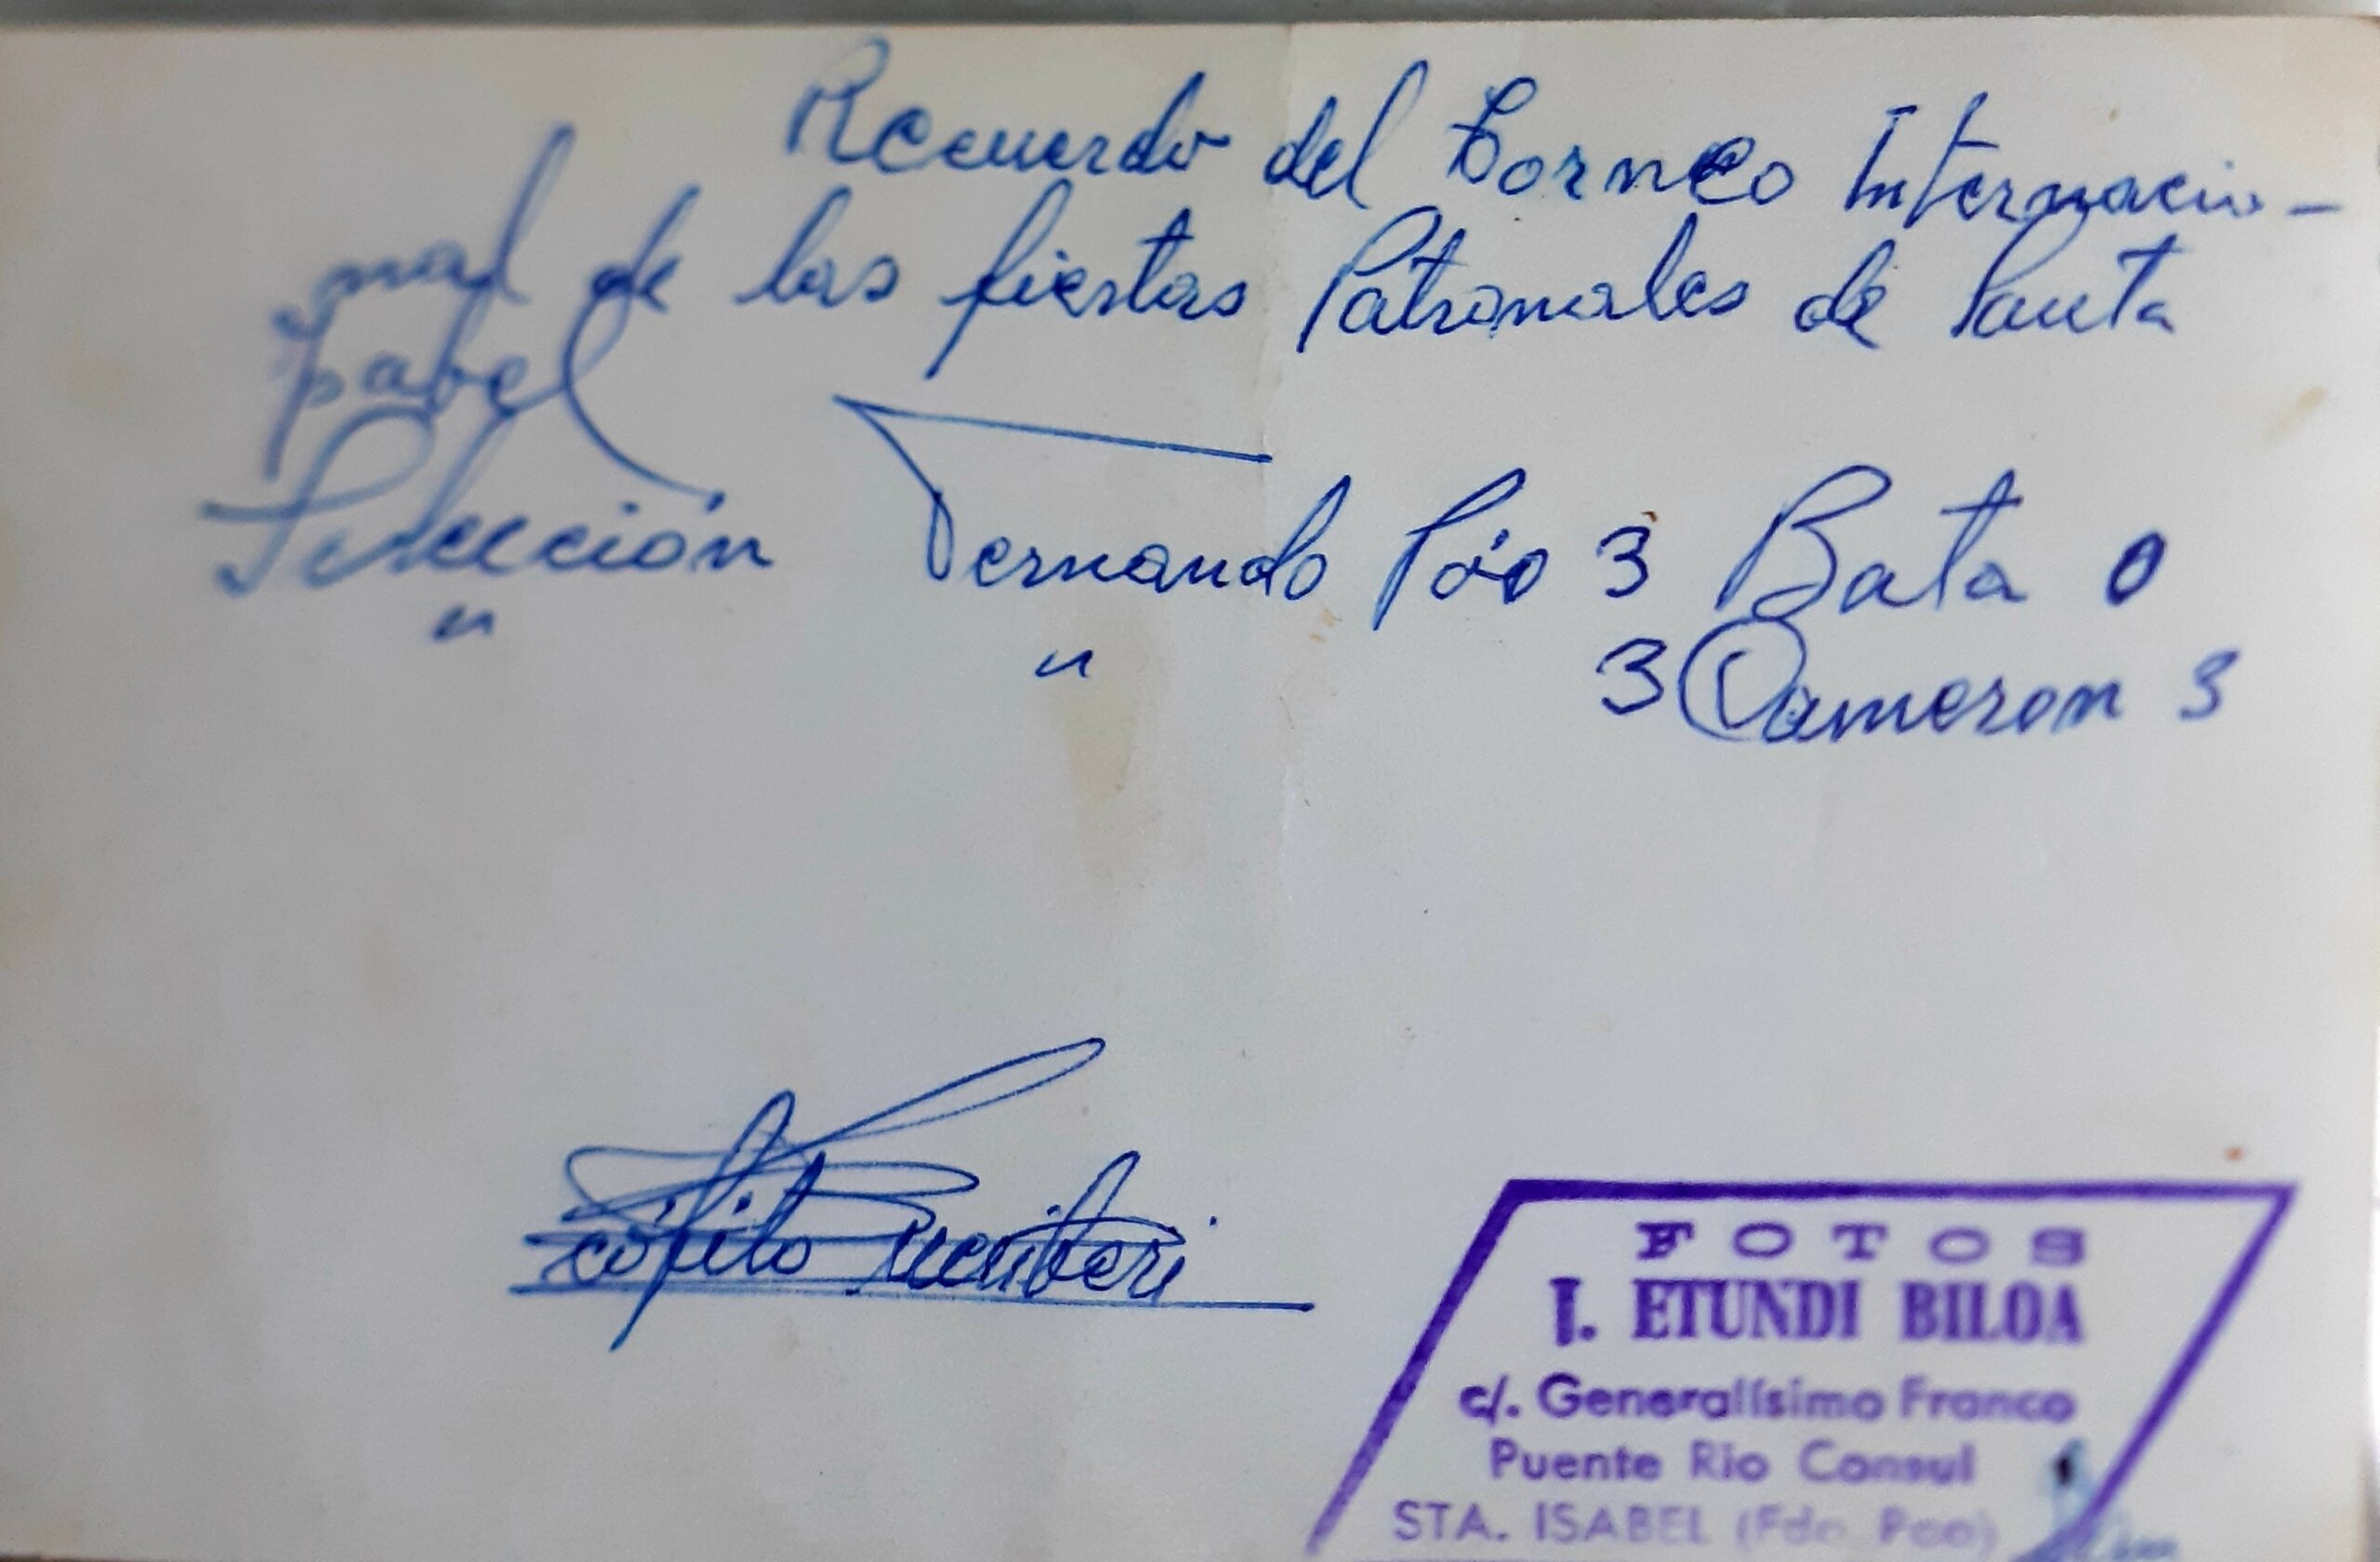 Recuerdo del Torneo Internacio-
nal de las fiestas Patronales de Santa
Isabel
Selección Fernando Póo 3 Bata 0
" " 3 Cameron 3
FOTOS
J. ETUNDI BILOA
c/. Generalísimo Franco
Puente Rio Consul
STA. ISABEL (Fdo. Poo)